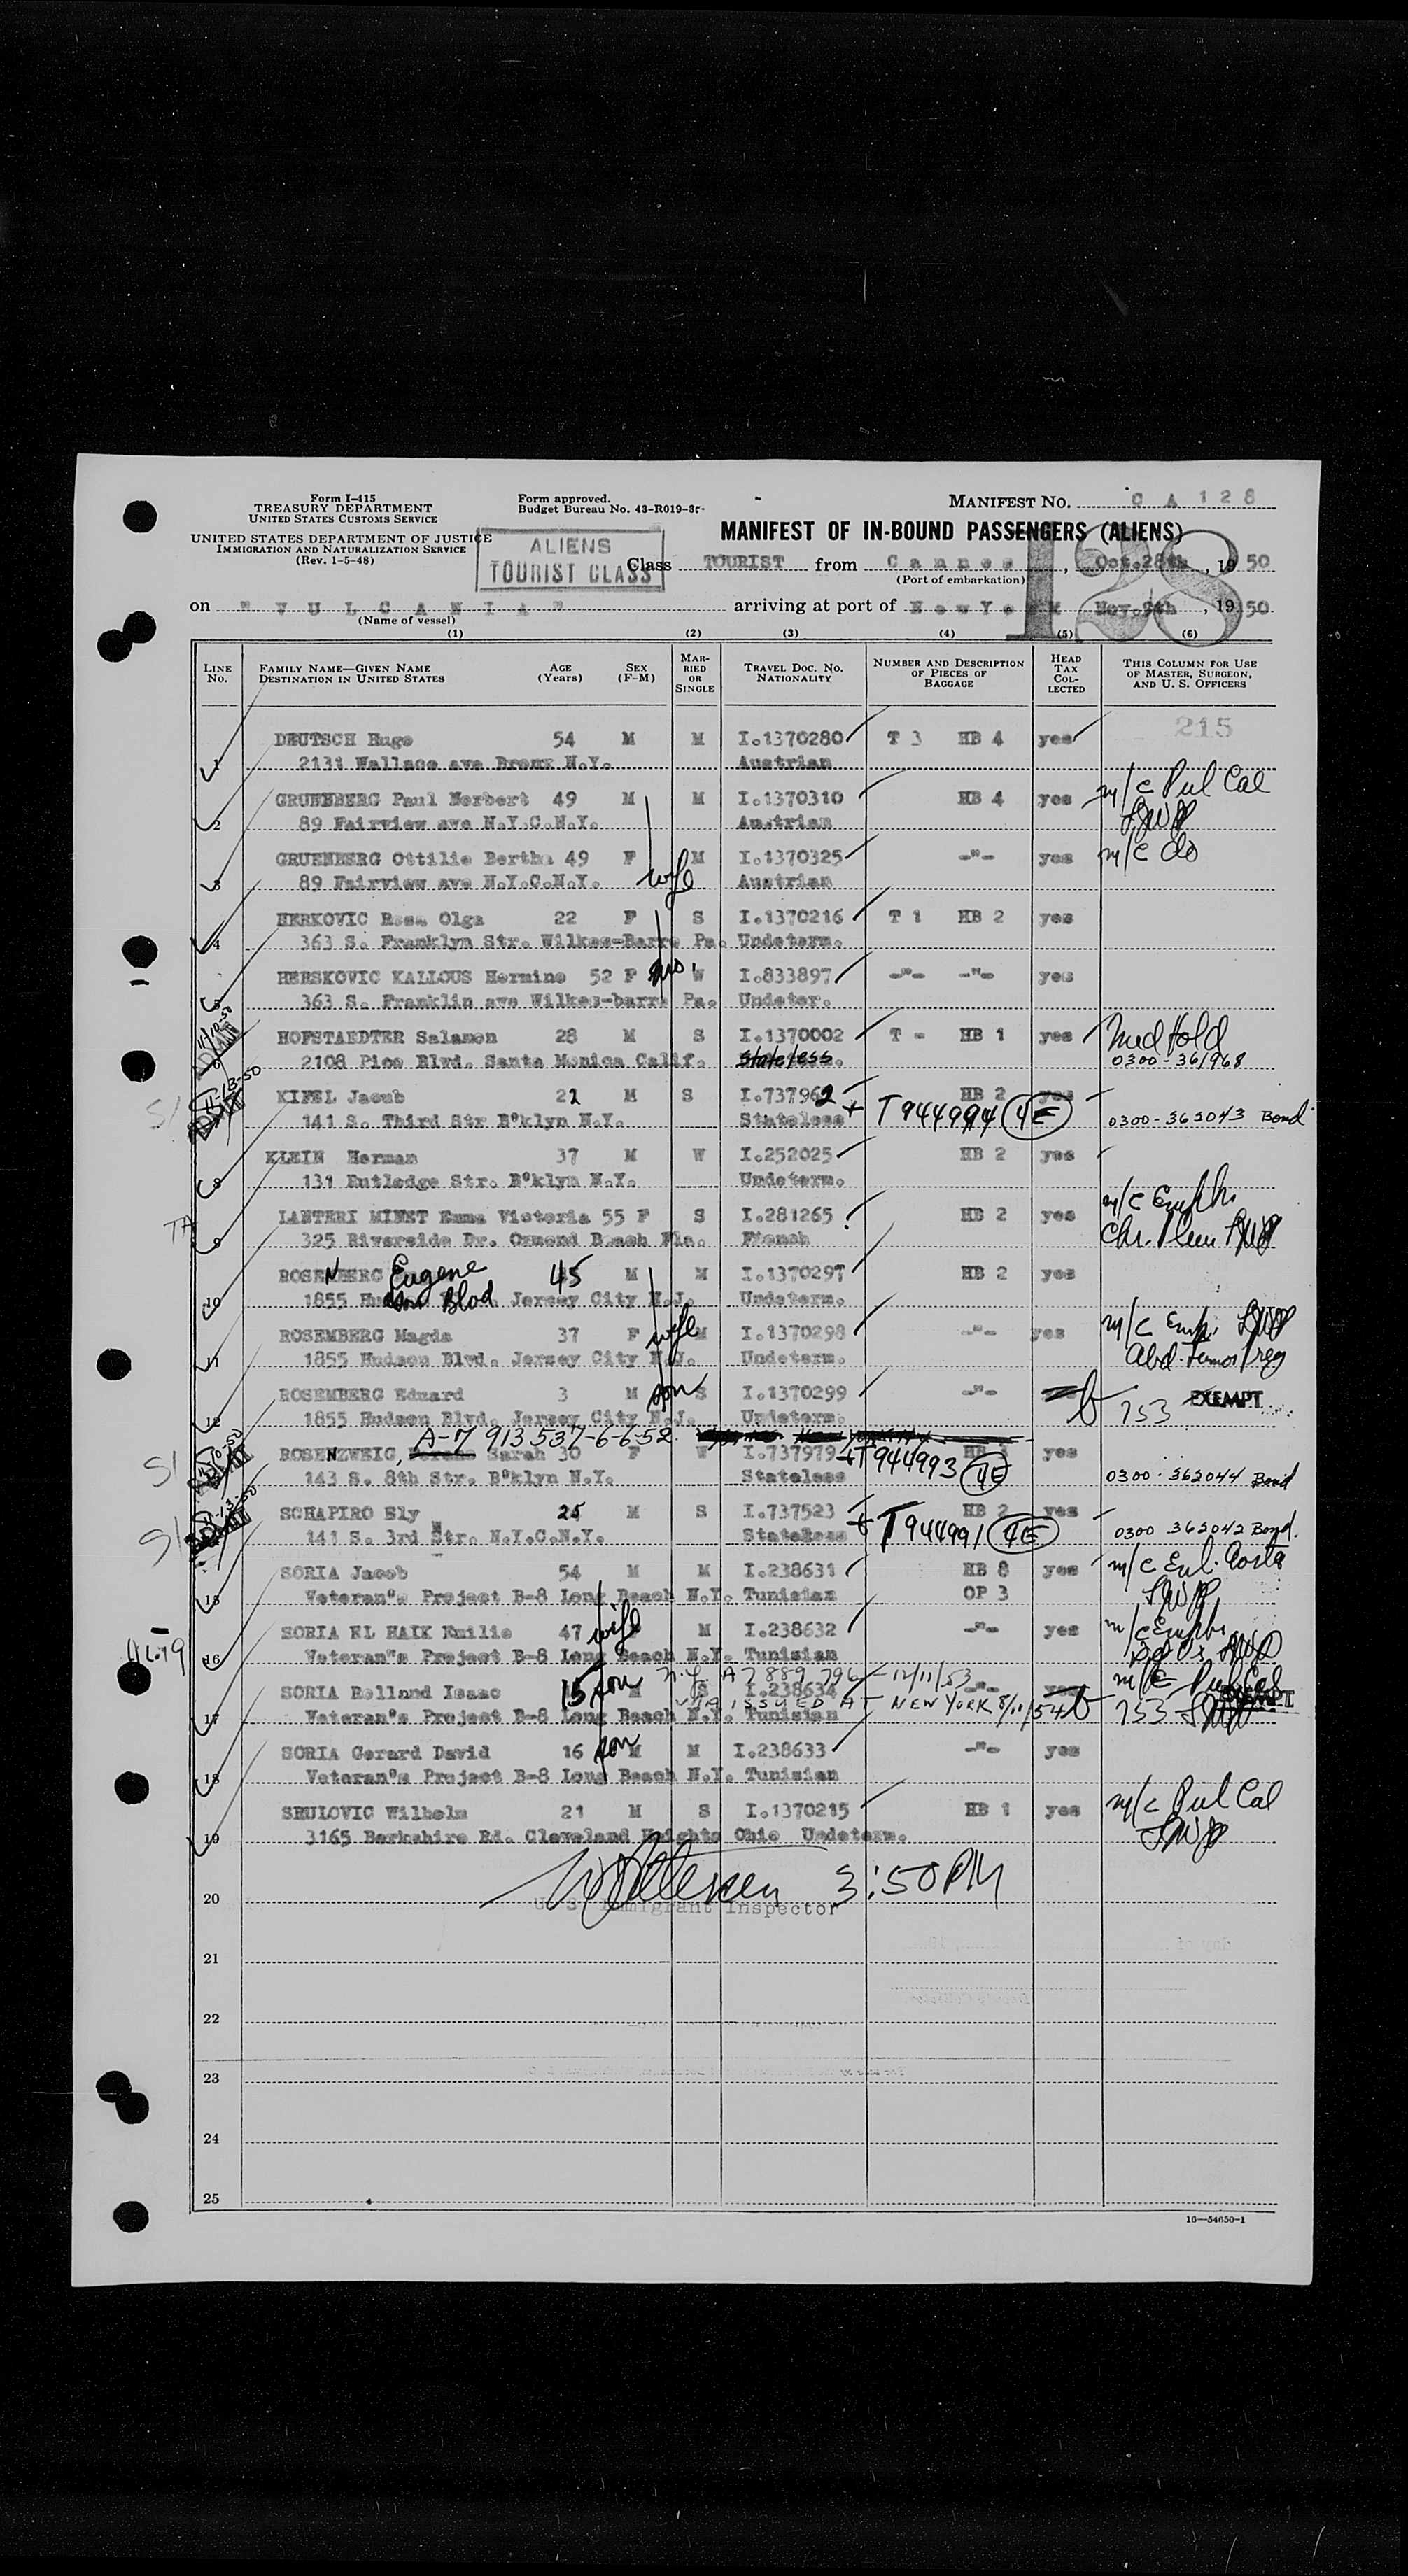 Form I-415
TREASURY DEPARTMENT
UNITED STATES CUSTOMS SERVICE
UNITED STATES DEPARTMENT OF JUSTICE
IMMIGRATION AND NATURALIZATION SERVICE
(Rev. 1-5-48)
Form approved.
Budget Bureau No. 43-R019-3
MANIFEST NO. C A 128
MANIFEST OF IN-BOUND PASSENGERS (ALIENS)
ALIENS
TOURIST CLASS
128
Class TOURIST from Cannes, Oct.28th, 1950
(Port of embarkation)
on " VULCANIA " arriving at port of New York Nov.9th, 1950
(Name of vessel)
(1) (2) (3) (4) (5) (6)
LINE NO. FAMILY NAME—GIVEN NAME DESTINATION IN UNITED STATES AGE (Years) SEX (F-M) MARRIED OR SINGLE TRAVEL DOC. NO. NATIONALITY NUMBER AND DESCRIPTION OF PIECES OF BAGGAGE HEAD TAX COLLECTED THIS COLUMN FOR USE OF MASTER, SURGEON, AND U. S. OFFICERS
215
DEUTSCH Hugo 54 M M I.1370280 T 3 HB 4 yes
1 2131 Wallace ave Bronx N.Y. Austrian
GRUENBERG Paul Norbert 49 M M I.1370310 HB 4 yes m/c Pul Cal
2 89 Fairview ave N.Y.C.N.Y. Austrian
GRUENBERG Ottilie Bertha 49 F M I.1370325 -"- yes m/c do
3 89 Fairview ave N.Y.C.N.Y. wife Austrian
HERKOVIC Rosa Olga 22 F S I.1370216 T 1 HB 2 yes
4 363 S. Franklyn Str. Wilkes-Barre Pa. Undeterm.
HERSKOVIC KALLOUS Hermine 52 F mo. W I.833897 -"- -"- yes
5 363 S. Franklin ave Wilkes-barre Pa. Undeter.
11-10-50
HOFSTAEDTER Salamon 28 M S I.1370002 T - HB 1 yes Med Hold
6 2108 Pico Blvd. Santa Monica Calif. Stateless. 0300-361968
11-13-50
SI KIFEL Jacub 22 M S I.737962 HB 2 yes
141 S. Third Str B°klyn N.Y. Stateless + T944994 (4E) 0300-362043 Bond
KLEIN Herman 37 M W I.252025 HB 2 yes
8 131 Rutledge Str. B°klyn N.Y. Undeterm.
TA LANTERI MINET Emma Victoria 55 F S I.281265 HB 2 yes m/c Emph.
9 325 Riverside Dr. Ormond Beach Fla. French
ROSENBERG Eugene 45 M M I.1370297 HB 2 yes
10 1855 Hudson Blvd. Jersey City N.J. Undeterm.
ROSEMBERG Magda 37 F wife M I.1370298 -"- yes m/c Emp.
11 1855 Hudson Blvd. Jersey City N.J. Undeterm.
ROSEMBERG Eduard 3 M son S I.1370299 -"- 753 EXEMPT
12 1855 Hudson Blvd. Jersey City N.J. Undeterm.
A-7 913 537-6-6-52
SI ROSENZWEIG, Sarah 30 F W I.737979 +T944993 (4E) yes
143 S. 8th Str. B°klyn N.Y. Stateless 0300-362044 Bond
11-13-50
SI SCHAPIRO Ely 25 M S I.737523 HB 2 yes
141 S. 3rd Str. N.Y.C.N.Y. Stateless + T944991 (4E) 0300 362042 Bond.
SORIA Jacob 54 M M I.238631 HB 8 yes
15 Veteran"s Project B-8 Long Beach N.Y. Tunisian OP 3
SORIA EL HAIK Emilie 47 wife M I.238632 -"- yes m/c Emph.
16 Veteran"s Project B-8 Long Beach N.Y. Tunisian
N.Y. A7 889 796 - 12/11/53
SORIA Rolland Isaac 15 son M S I.238634 -"-
ISSUED AT NEW YORK 8/11/54
17 Veteran"s Project B-8 Long Beach N.Y. Tunisian 753
SORIA Gerard David 16 son M M I.238633 -"- yes
18 Veteran"s Project B-8 Long Beach N.Y. Tunisian
SMULOVIC Wilhelm 21 M S I.1370215 HB 1 yes m/c Pul Cal
19 3165 Berkshire Rd. Cleveland Heights Ohio Undeterm.
3:50 PM
20 U. S. Immigrant Inspector
21
22
23
24
25
16—54650-1